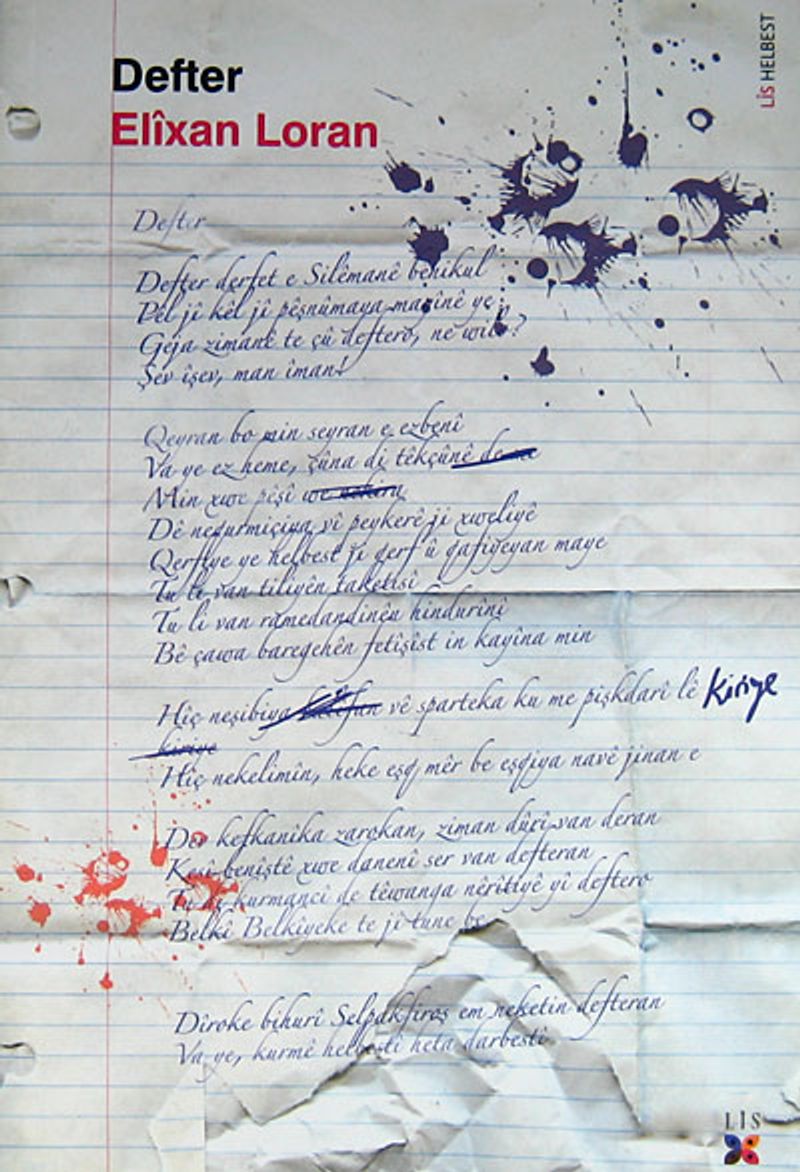 Defter
Elîxan Loran
LÎS HELBEST
Defter
Defter derfet e Silêmanê benikul
Pel jî kêl jî pêşnûmaya marînê ye
Geja zimanê te çû deftero, ne wilo?
Şev îşev, man îman!
Qeyran bo min seyran e ezbenî
Va ye ez heme, çûna di têkçûnê de
Min xwe pêşî
Dê negurmiçiya vî peykerê ji xweliyê
Qerftye ye helbest ji qerf û qafiyeyan maye
Tu li van tiliyên
Tu li van ramedandinêu hindurînî
Bê çawa baregehên fetîşîst in kayîna min
Hîç neşibiya vê sparteka ku me pişkdarî lê kiriye
kiriye
Hîç nekelimîn, heke eşq mêr be eşqiya navê jinan e
Der kefkanîka zarokan, ziman dûrî van deran
Kesî beniştê xwe danenî ser van defteran
Tu di kurmancî de têwanga nêrîtiyê yî deftero
Belkî Belkîyeke te jî tune be
Dîroke bihurî Selpakfiroş em neketin defteran
Va ye, kurmê helbestî heta darbestî
LÎS